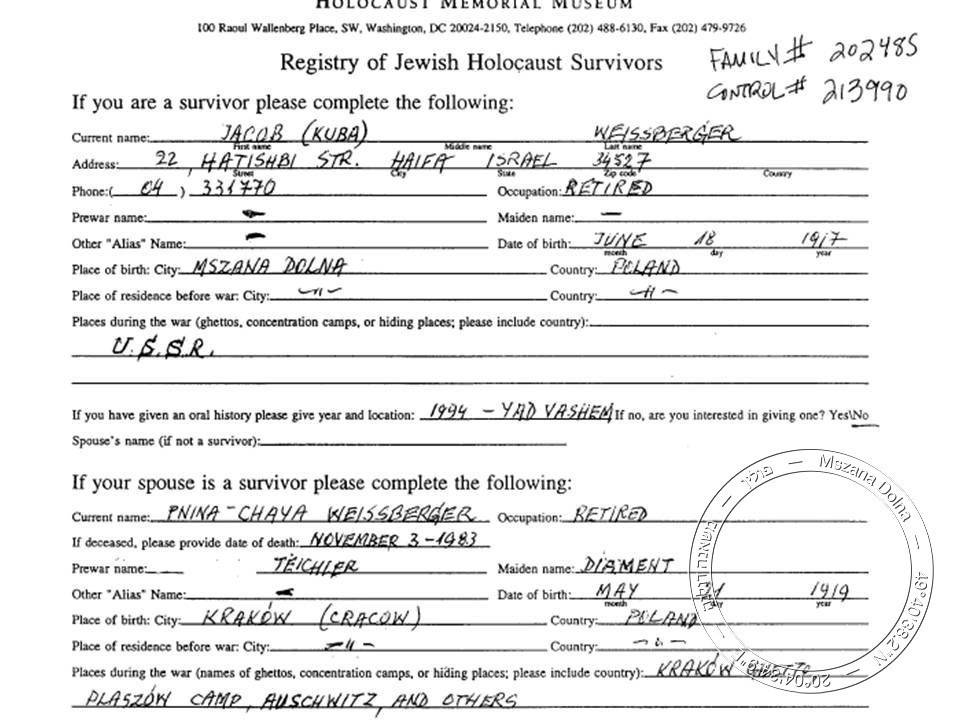 HOLOCAUST MEMORIAL MUSEUM
100 Raoul Wallenberg Place, SW, Washington, DC 20024-2150, Telephone (202) 488-6130, Fax (202) 479-9726
Registry of Jewish Holocaust Survivors
FAMILY# 202485
CONTROL# 213990
If you are a survivor please complete the following:
Current name: JACOB (KUBA) WEISSBERGER
First name Middle name Last name
Address: 22, HATISHBI STR. HAIFA ISRAEL 34527
Street City State Zip code Country
Phone:( 04 ) 331770 Occupation: RETIRED
Prewar name: — Maiden name: —
Other "Alias" Name: — Date of birth: JUNE 18 1917
month day year
Place of birth: City: MSZANA DOLNA Country: POLAND
Place of residence before war: City: —"— Country: —"—
Places during the war (ghettos, concentration camps, or hiding places; please include country):
U.S.S.R.
If you have given an oral history please give year and location: 1994 - YAD VASHEM If no, are you interested in giving one? Yes\No
Spouse's name (if not a survivor):
If your spouse is a survivor please complete the following:
Current name: PNINA-CHAYA WEISSBERGER Occupation: RETIRED
If deceased, please provide date of death: NOVEMBER 3-1983
Prewar name: TEICHLER Maiden name: DIAMENT
Other "Alias" Name: — Date of birth: MAY 1919
month year
Place of birth: City: KRAKÓW (CRACOW) Country: POLAND
Place of residence before war: City: —"— Country: —"—
Places during the war (names of ghettos, concentration camps, or hiding places; please include country): KRAKÓW GHETTO
PLASZÓW CAMP, AUSCHWITZ, AND OTHERS
Mszana Dolna — 49°40'38.2"N — פולין